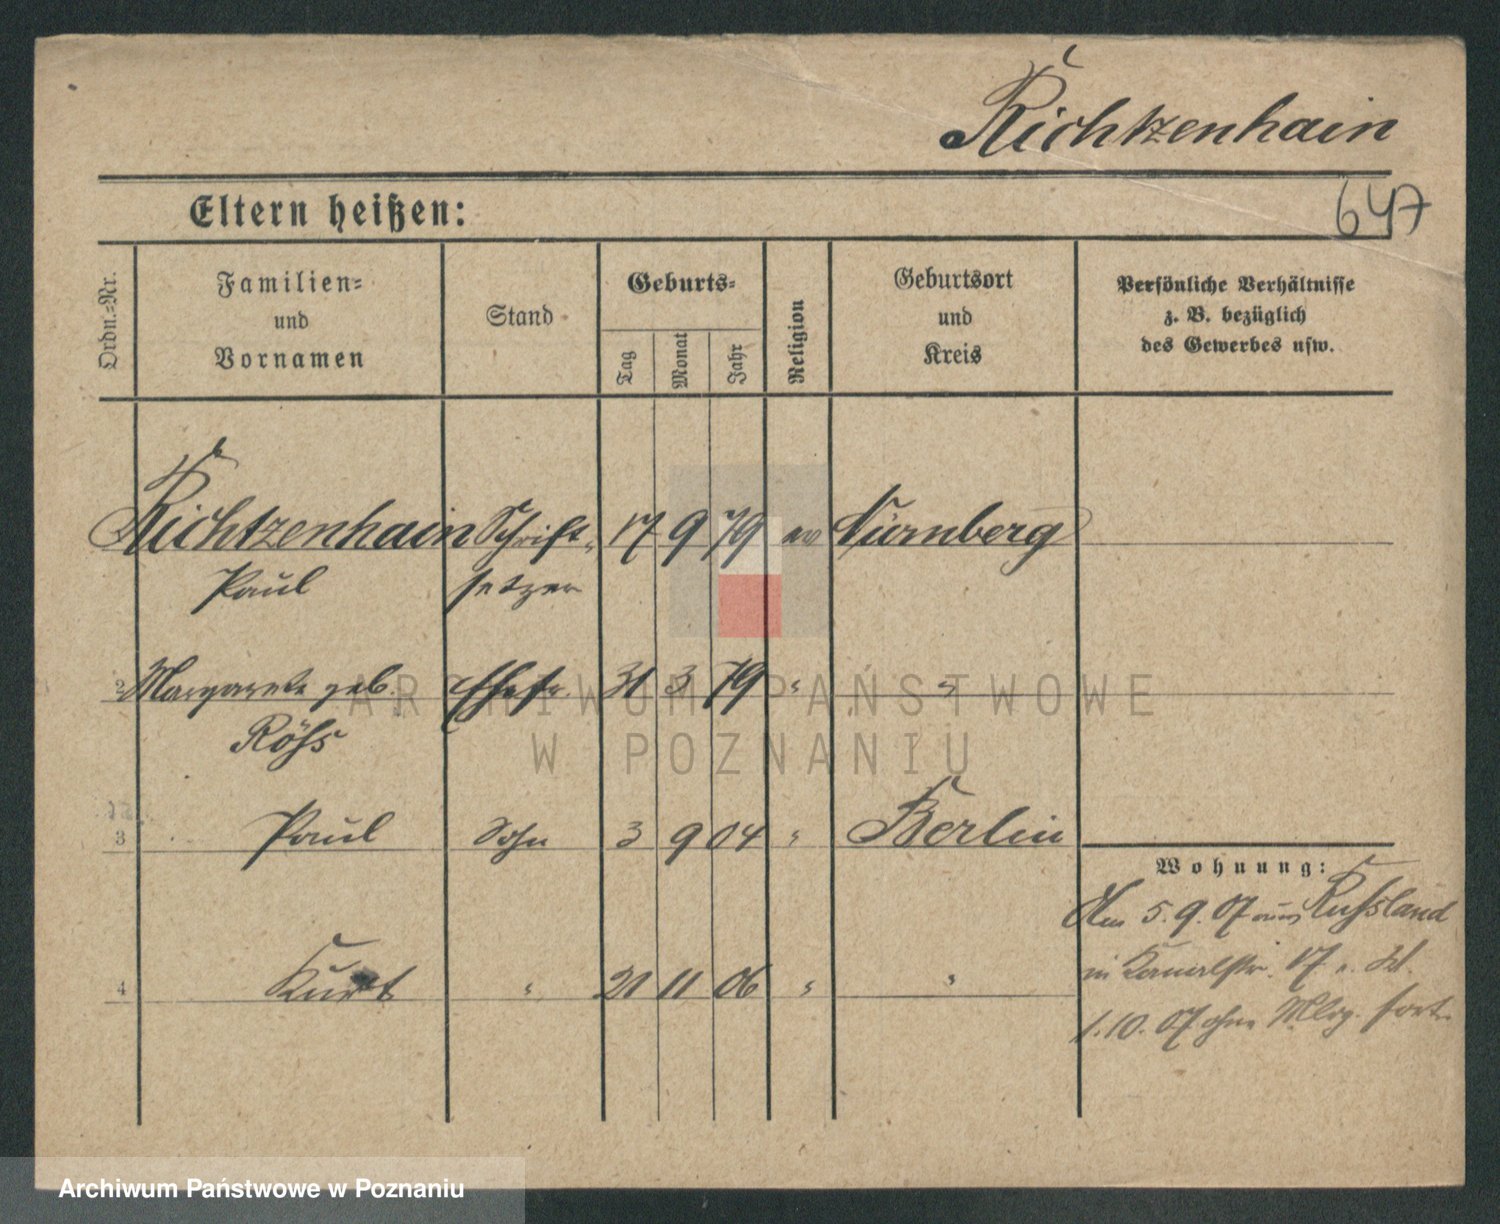 Richtzenhain
Eltern heißen:
647
Ordn.-Nr.
Familien-
und
Vornamen
Stand
Geburts-
Tag
Monat
Jahr
Religion
Geburtsort
und
Kreis
Persönliche Verhältnisse
z. B. bezüglich
des Gewerbes usw.
Richtzenhain Schrift- 17 9 79 ev Nürnberg
Paul setzer
2 Margarete geb. Ehefr. 31 3 79 " "
Röhs
3 Paul Sohn 3 9 04 " Berlin
Wohnung:
Am 5.9.07 aus Russland
4 Kurt " 21 11 06 " "
in Kanalstr. 17
1.10.07 ohne Mldg. fort.
ARCHIWUM PAŃSTWOWE
W POZNANIU
Archiwum Państwowe w Poznaniu